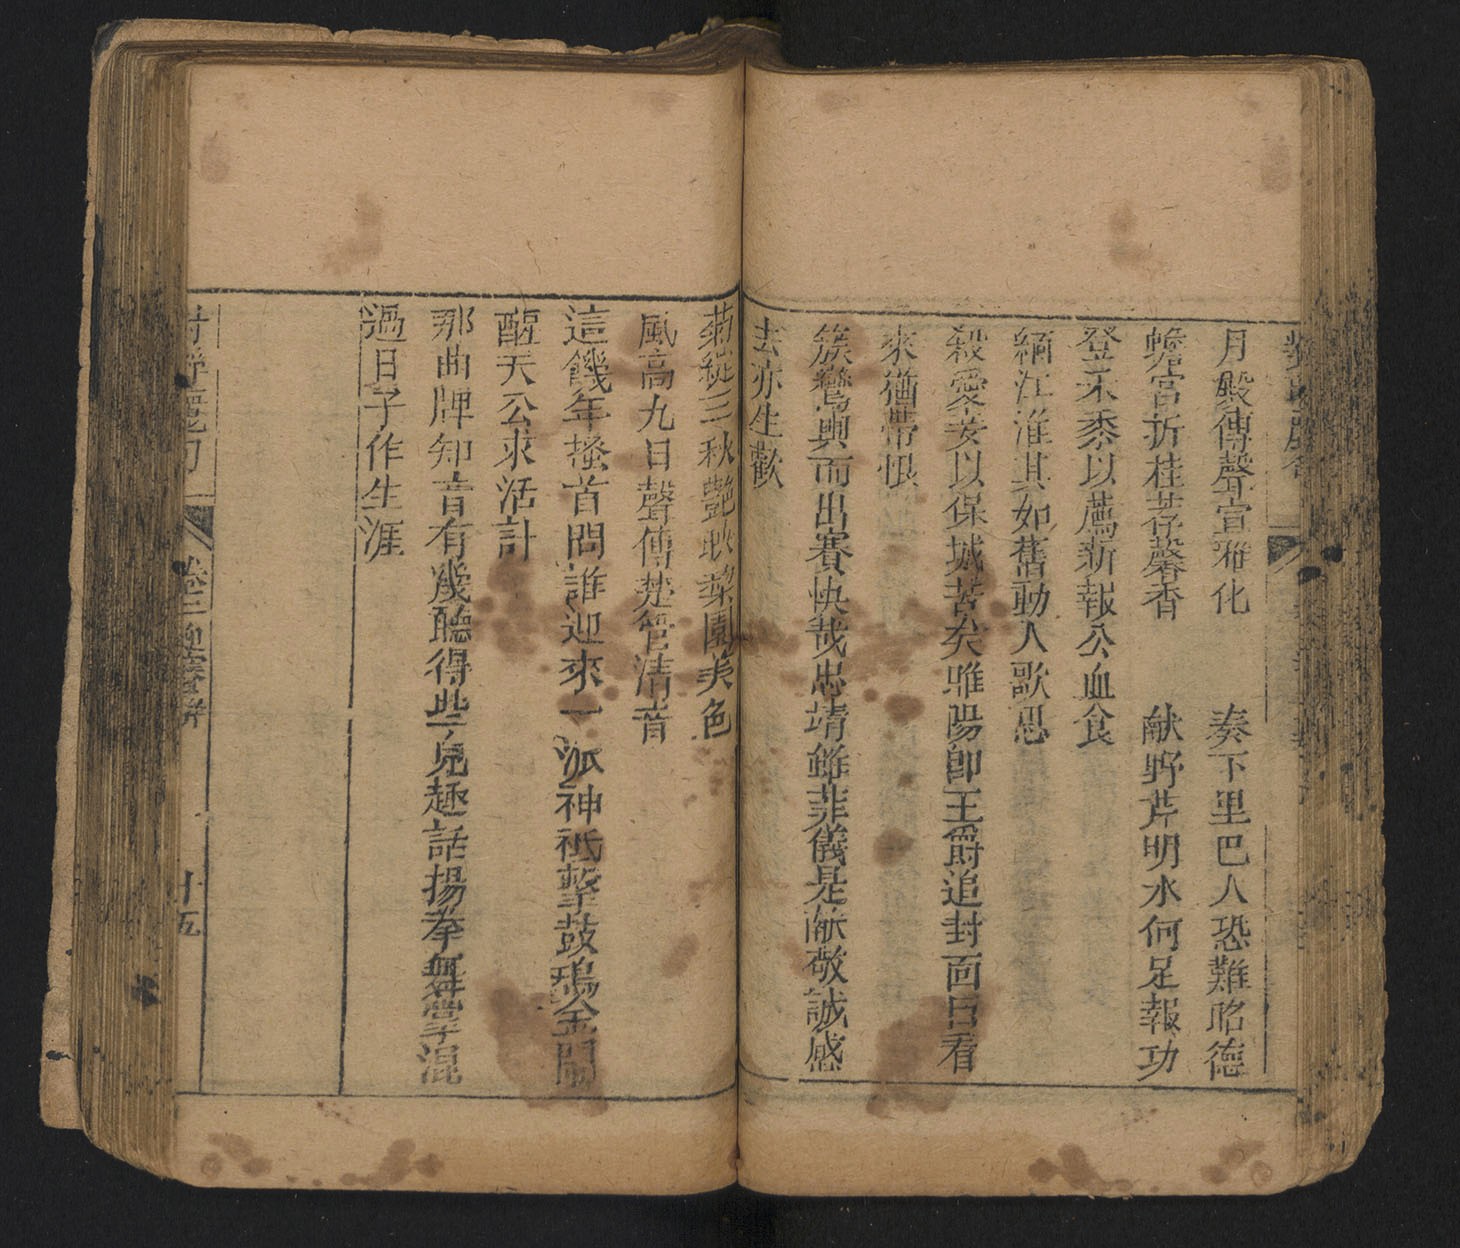 月殿傳聲宣雅化　奏下里巴人恐難昭德
蟾宮折桂荐馨香　献野芹明水何足報功
登禾黍以薦新報公血食
緬江淮其如舊動人歌思
殺愛妾以保城苦矣睢陽卽王爵追封面目看
來猶帶恨
簇鸞輿而出賽快哉忠靖雖菲儀是献敬誠感
去亦生歡
菊綻三秋艶映梨園美色
風高九日聲傳楚管清音
這饑年搔首問誰迎來一派神祇擊鼓鳴金鬧
醒天公求活計
那曲牌知音有幾聽得些子兒趣話揚拳舞掌混
過日子作生涯
卷二
廿五